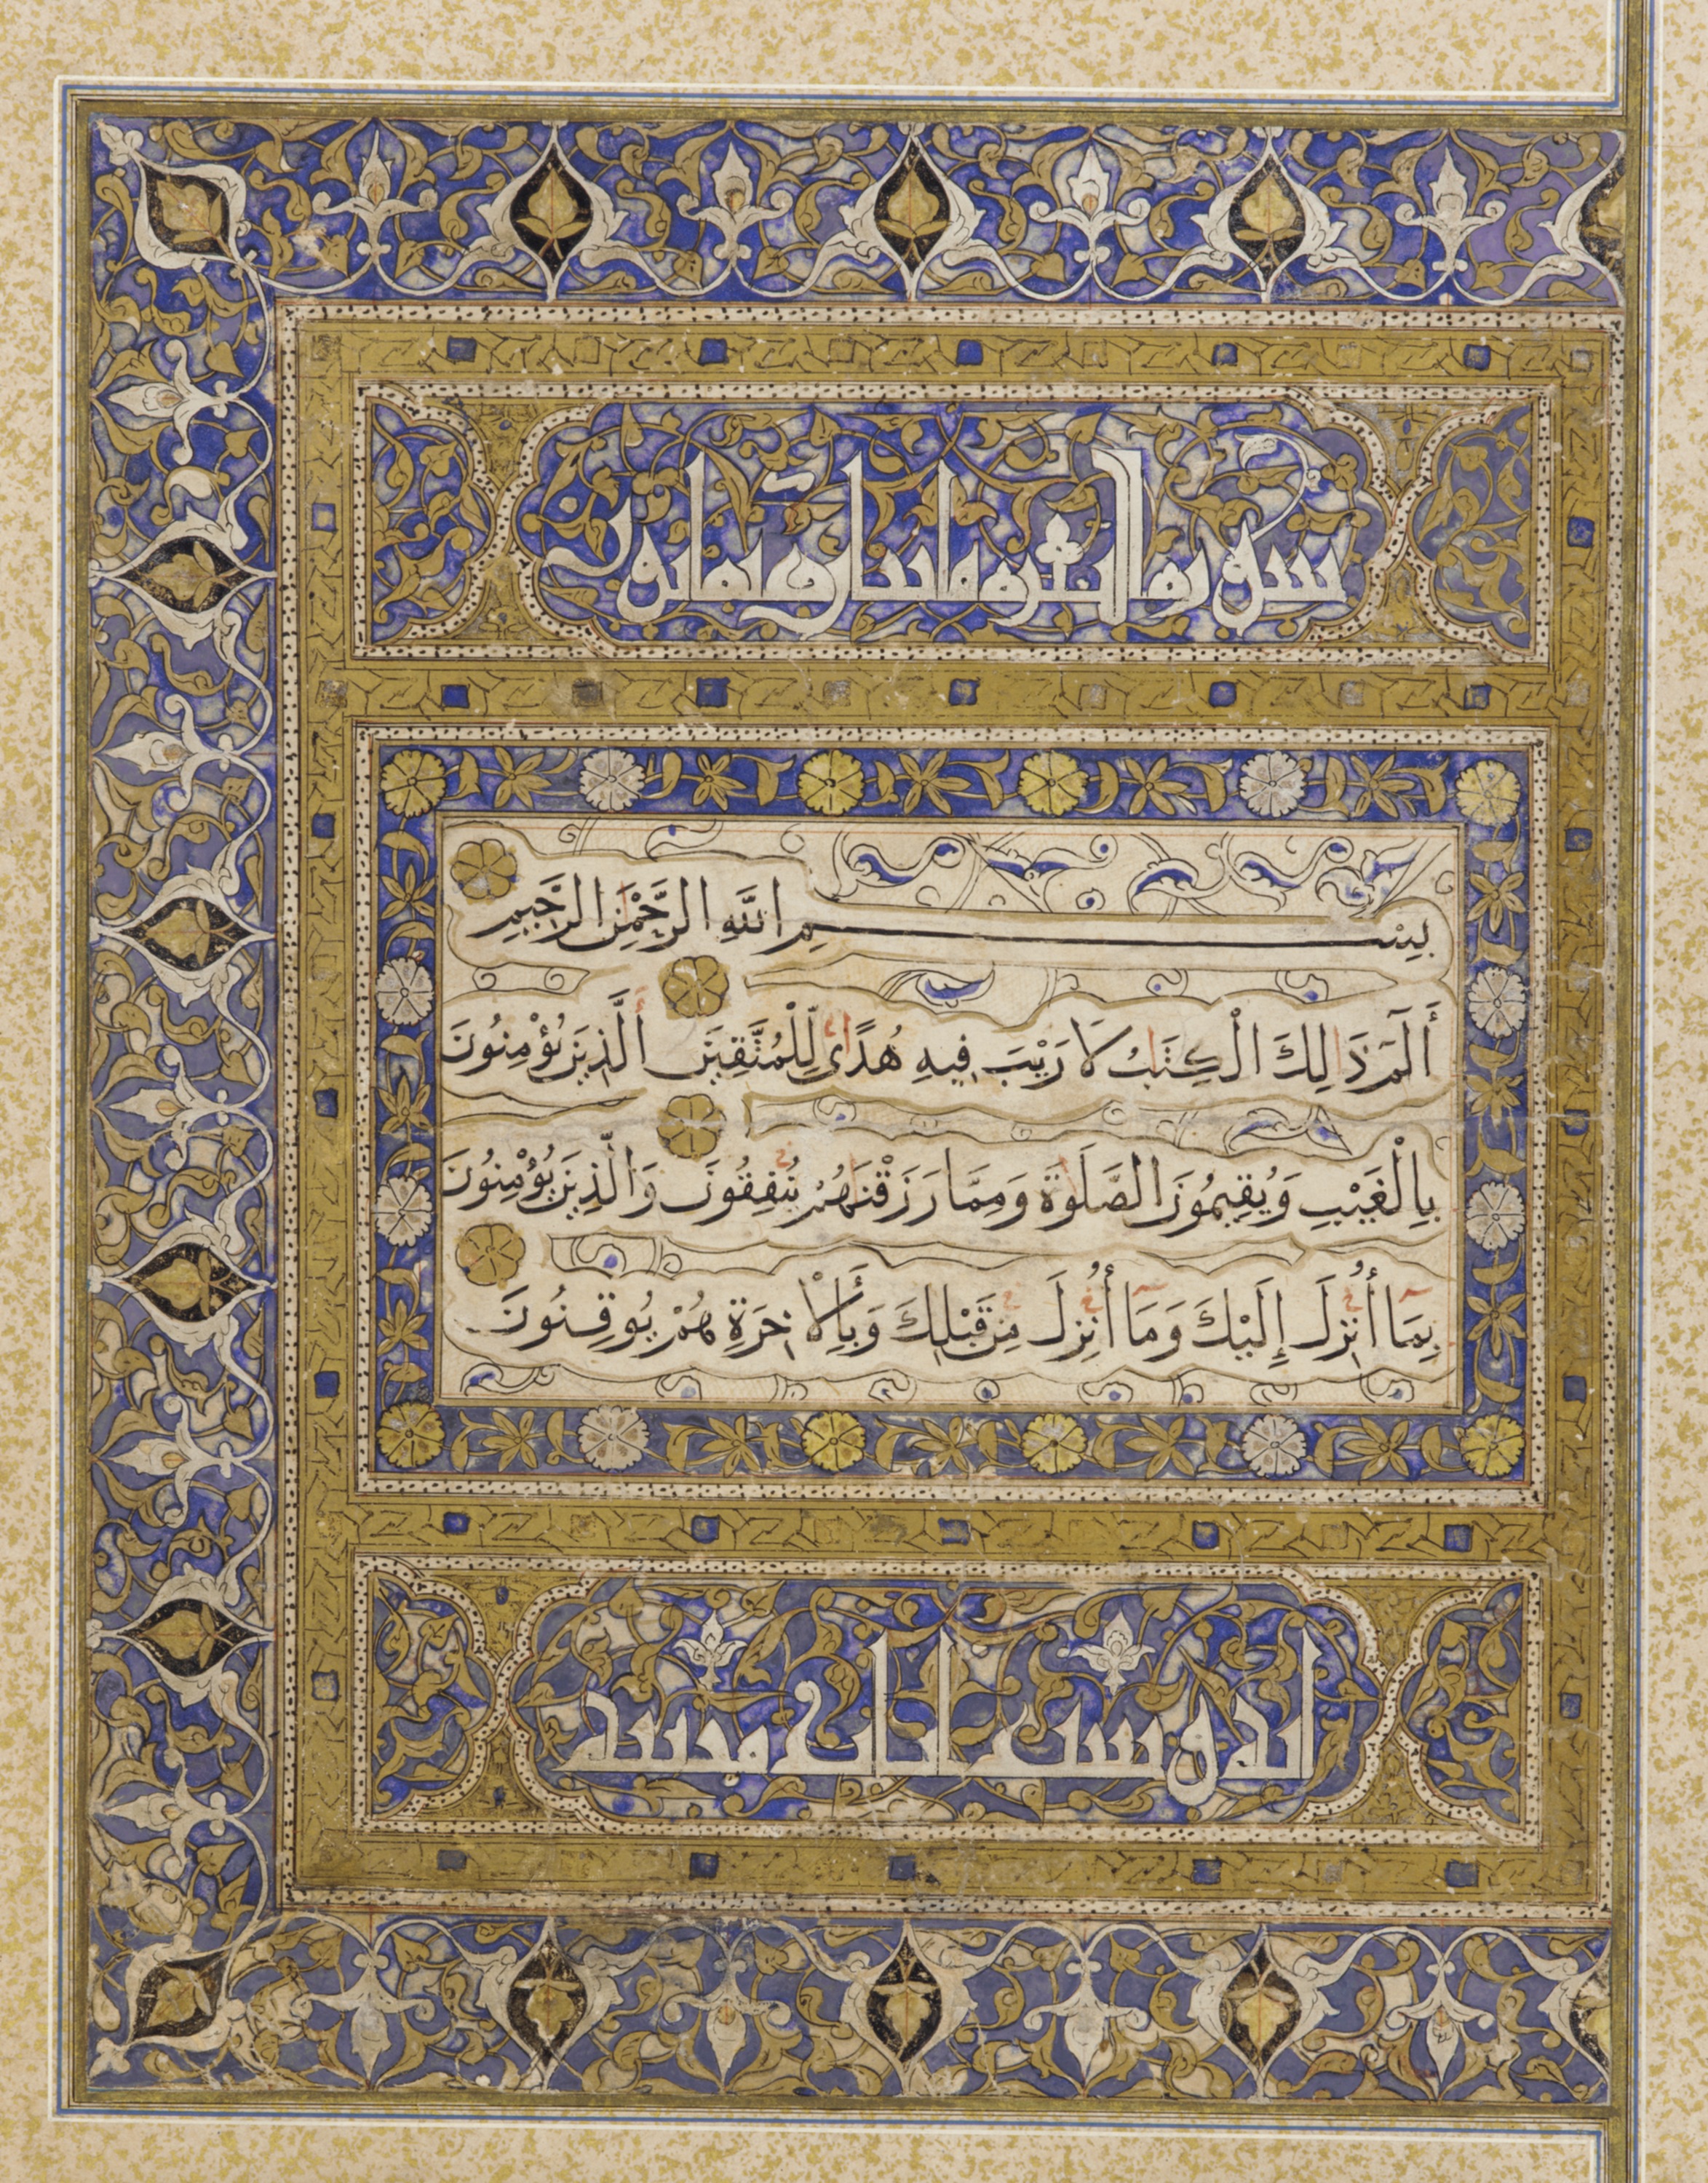 بِسْمِ اللَّهِ الرَّحْمَٰنِ الرَّحِيمِ
أَلَمّٓ ذَٰلِكَ الْكِتَٰبُ لَا رَيْبَ فِيهِ هُدًى لِّلْمُتَّقِينَ الَّذِينَ يُؤْمِنُونَ
بِالْغَيْبِ وَيُقِيمُونَ الصَّلَوٰةَ وَمِمَّا رَزَقْنَٰهُمْ يُنْفِقُونَ وَالَّذِينَ يُؤْمِنُونَ
بِمَا أُنْزِلَ إِلَيْكَ وَمَا أُنْزِلَ مِنْ قَبْلِكَ وَبِالْأَخِرَةِ هُمْ يُوقِنُونَ